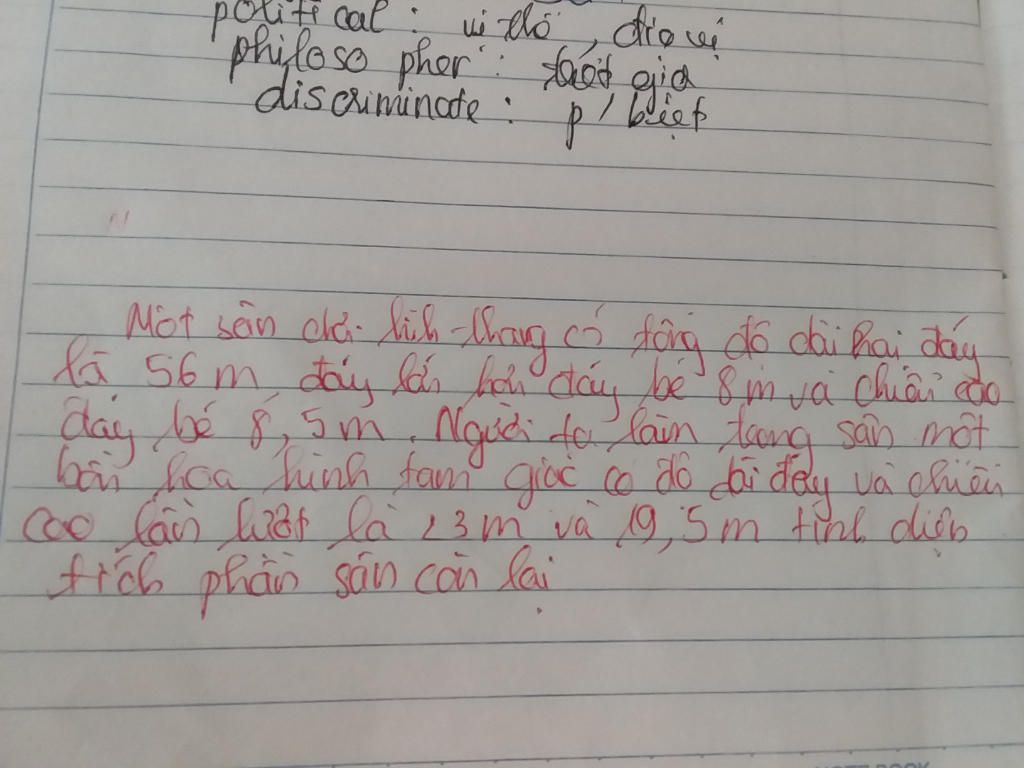 political : vĩ độ, địa vị
philosopher : triết gia
discriminate : p/biệt
Một sân chơi hình thang có tổng độ dài hai đáy
là 56 m đáy lớn hơn đáy bé 8 m và chiều cao
đáy bé 8,5 m. Người ta làm trong sân một
bồn hoa hình tam giác có độ dài đáy và chiều
cao lần lượt là 23 m và 19,5 m tính diện
tích phần sân còn lại